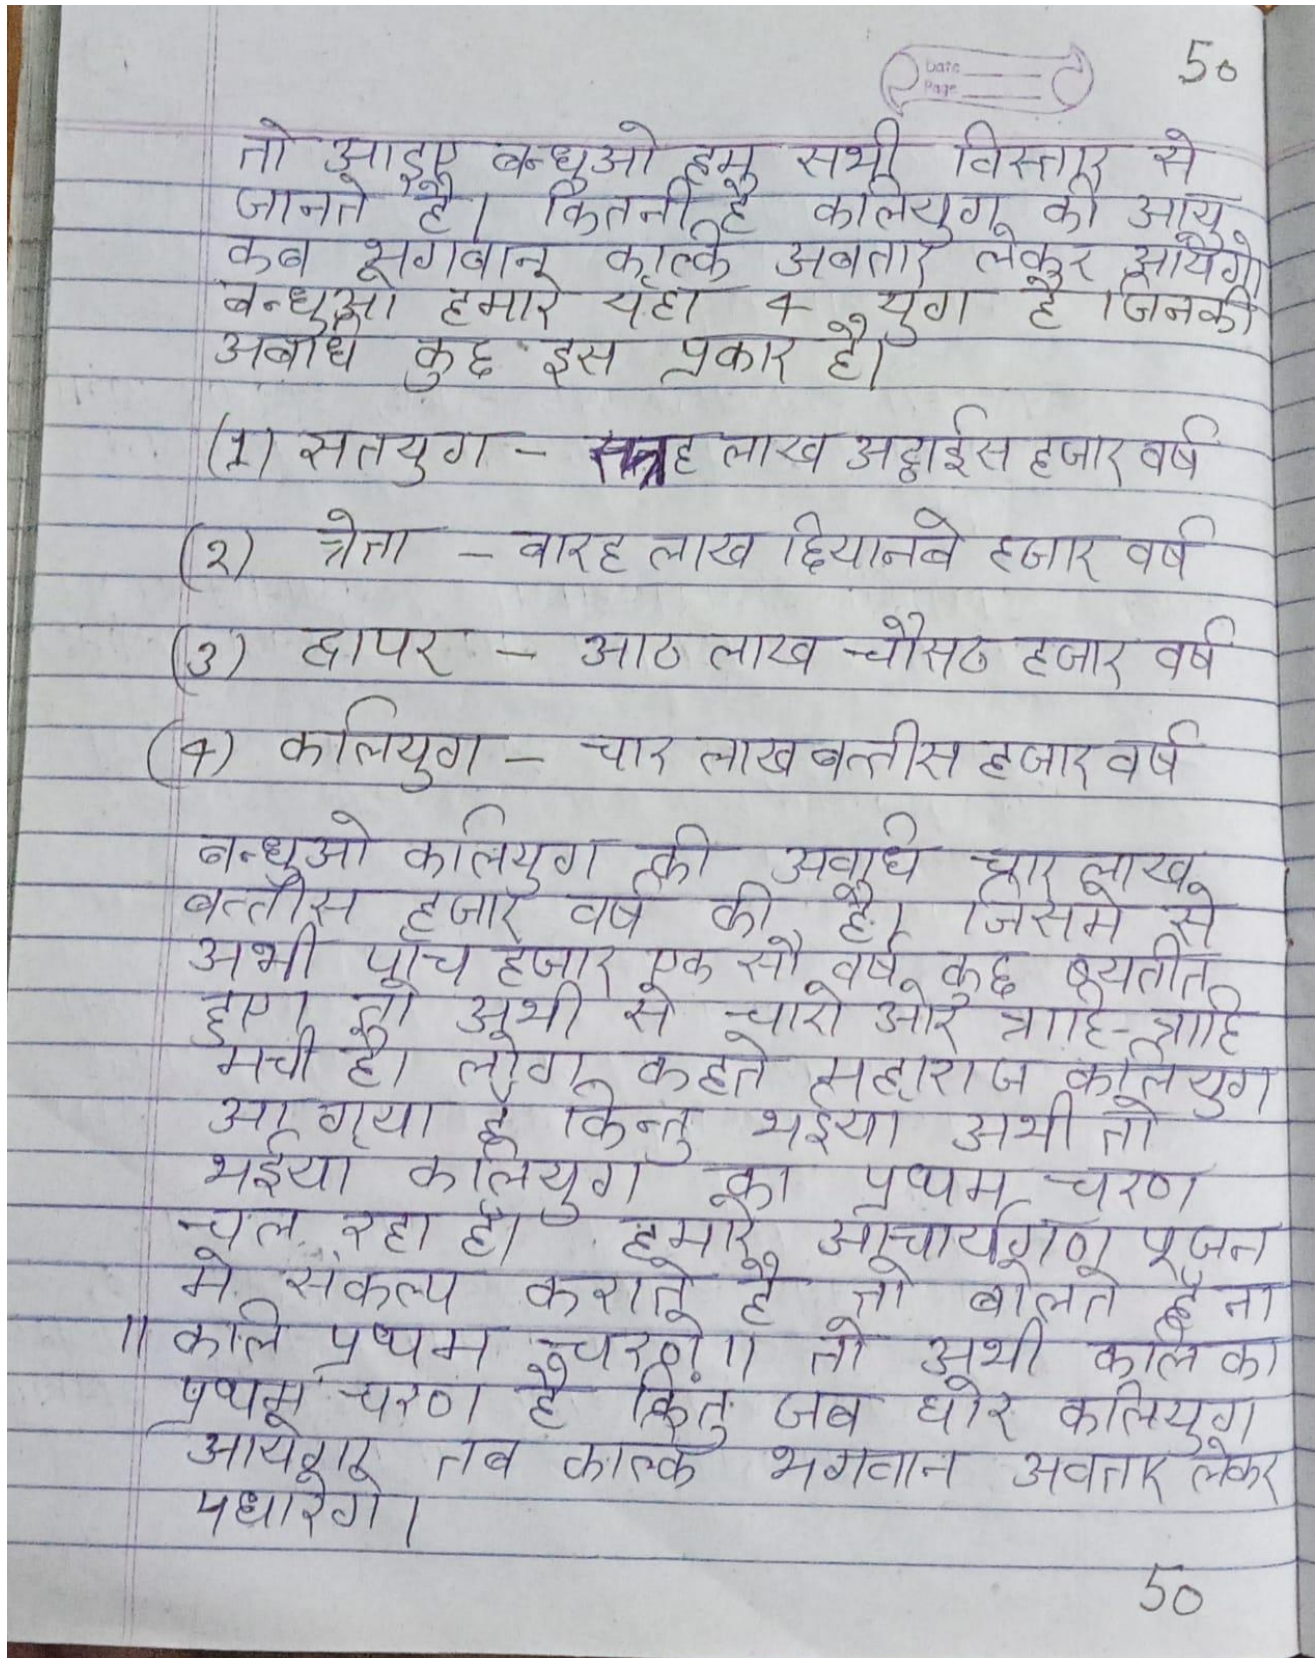 50
Date
Page
तो आइए बन्धुओ हम सभी विस्तार से
जानते है। कितनी है कलियुग की आयु
कब भगवान कल्कि अबतार लेकर आयेगे
बन्धुओ हमारे यहा 4 युग है जिनकी
अबधि कुछ इस प्रकार है।
(1) सतयुग - सत्रह लाख अट्ठाईस हजार वर्ष
(2) त्रेता - वारह लाख छियानबे हजार वर्ष
(3) द्वापर - आठ लाख चौसठ हजार वर्ष
(4) कलियुग - चार लाख बत्तीस हजार वर्ष
बन्धुओ कलियुग की अवधि चार लाख
बत्तीस हजार वर्ष की है। जिसमे से
अभी पाँच हजार एक सौ वर्ष कुछ व्यतीत
हुए। तो अभी से चारो ओर त्राहि-त्राहि
मची है। लोग कहते महाराज कलियुग
आ गया है किन्तु भइया अभी तो
भईया कलियुग का प्रथम चरण
चल रहा है। हमारे आचार्यगण पूजन
मे संकल्प कराते है तो बोलते है ना
॥ कलि प्रथम चरणे॥ तो अभी कलि का
प्रथम चरण है किंतु जब घोर कलियुग
आयेगा तब कल्कि भगवान अवतार लेकर
पधारेगे।
50